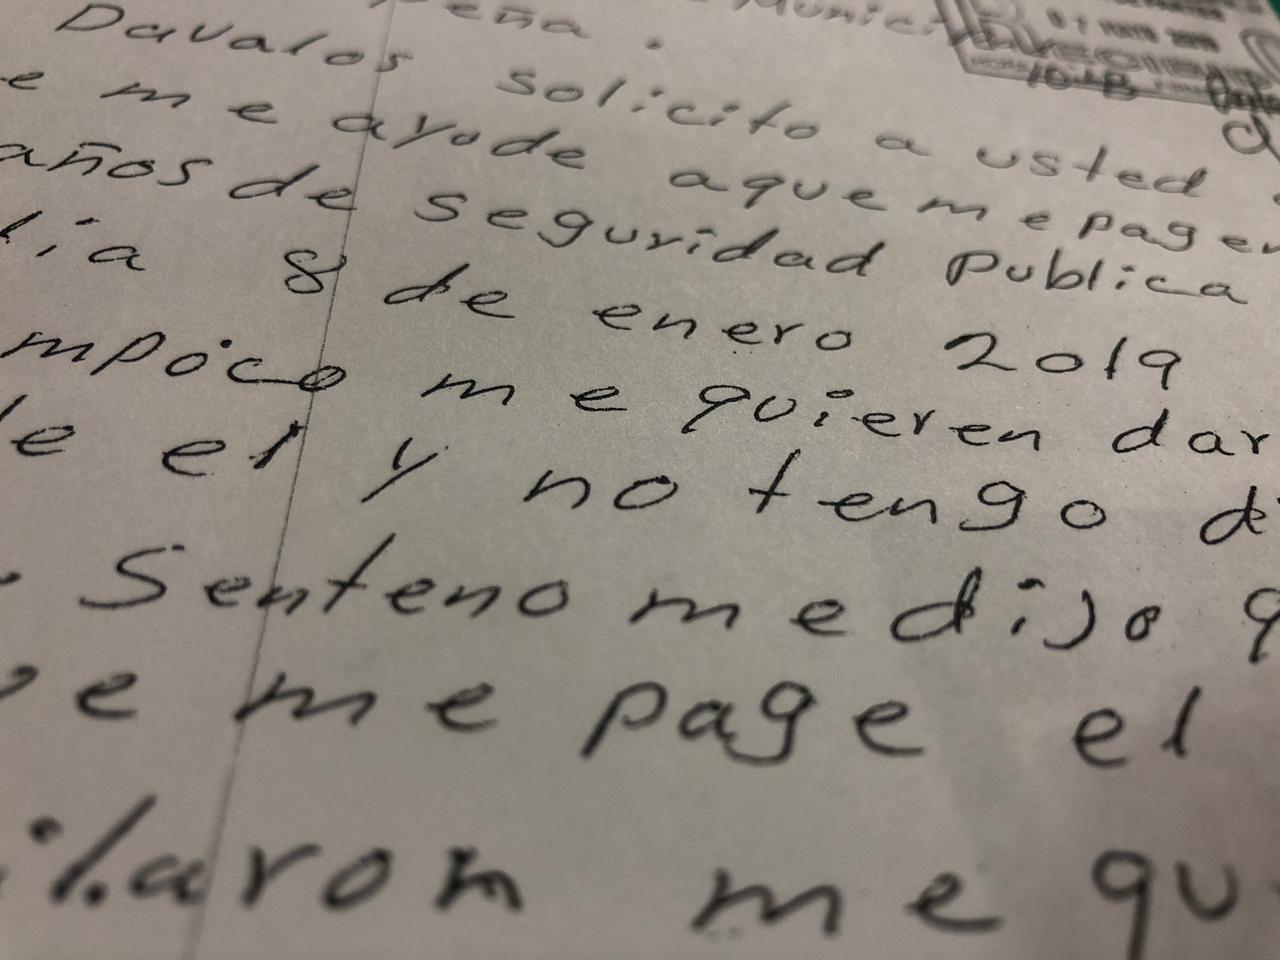 Davalos solicito a usted
e me ayude aque me pagen
años de seguridad publica
8 de enero 2019
mpoco me quieren dar
de el y no tengo d
Senteno me dijo q
e me page el
ilaron me qu